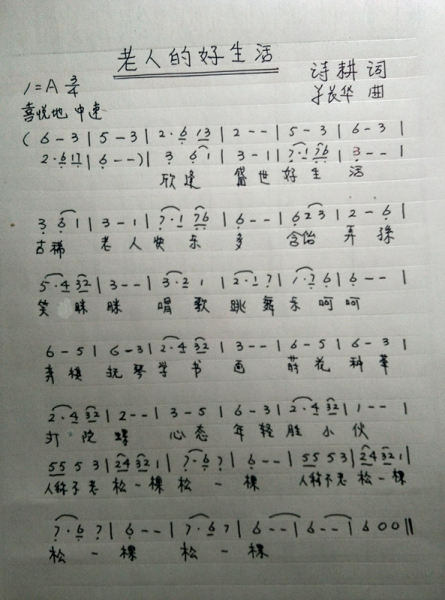 老人的好生活
1=A 3/4 诗耕 词
喜悦地 中速 长华 曲
( 6 - 3 | 5 - 3 | 2· 6 13 | 2 - - | 5 - 3 | 6 - 3 |
2· 6 17 | 6 - - ) | 3 6 1 | 3 - 1 | 7· 1 76 | 3 - - |
欣逢 盛世好生活
3 6 1 | 3 - 1 | 7· 1 76 | 6 - - | 6 2 3 | 2 - 6 |
古稀 老人快乐多 含饴 弄孫
5· 4 32 | 3 - - | 3· 2 1 | 2· 1 7 | 1· 7 6 | 6 - - |
笑眯眯 唱歌跳舞乐呵呵
6 - 5 | 6 - 3 | 2· 4 32 | 3 - - | 6 - 5 | 6 - 3 |
弄棋抚琴学书画 莳花种草
2· 4 32 | 2 - - | 3 - 5 | 6 - 3 | 2· 4 32 | 1 - - |
打陀螺 心态年轻胜小伙
55 5 3 | 24 32 1 | 7· 6 | 6 - - | 55 5 3 | 24 32 1 |
人称不老松一棵松一棵 人称不老松一棵
7· 6 7 | 6 - - | 7· 6 7 | 6 - - | 6 - - | 6 0 0 ||
松一棵 松一棵